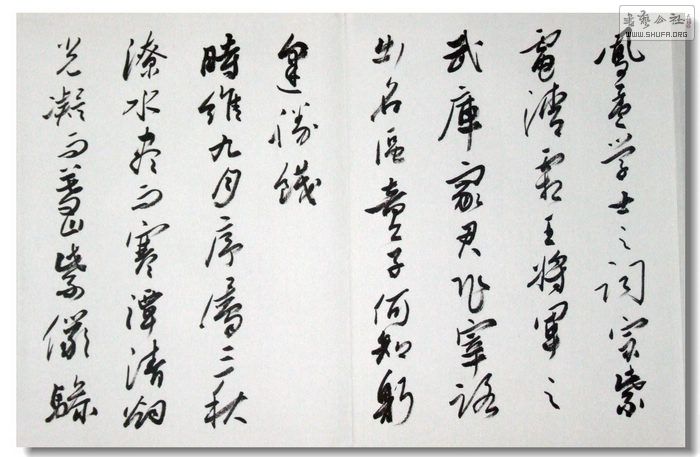 鳳孟学士之词宗紫
電清霜王将軍之
武庫家君作宰路
出名區童子何知躬
逢勝餞
時維九月序屬三秋
潦水尽而寒潭清烟
光凝而暮山紫儼骖
書藝公社
WWW.SHUFA.ORG